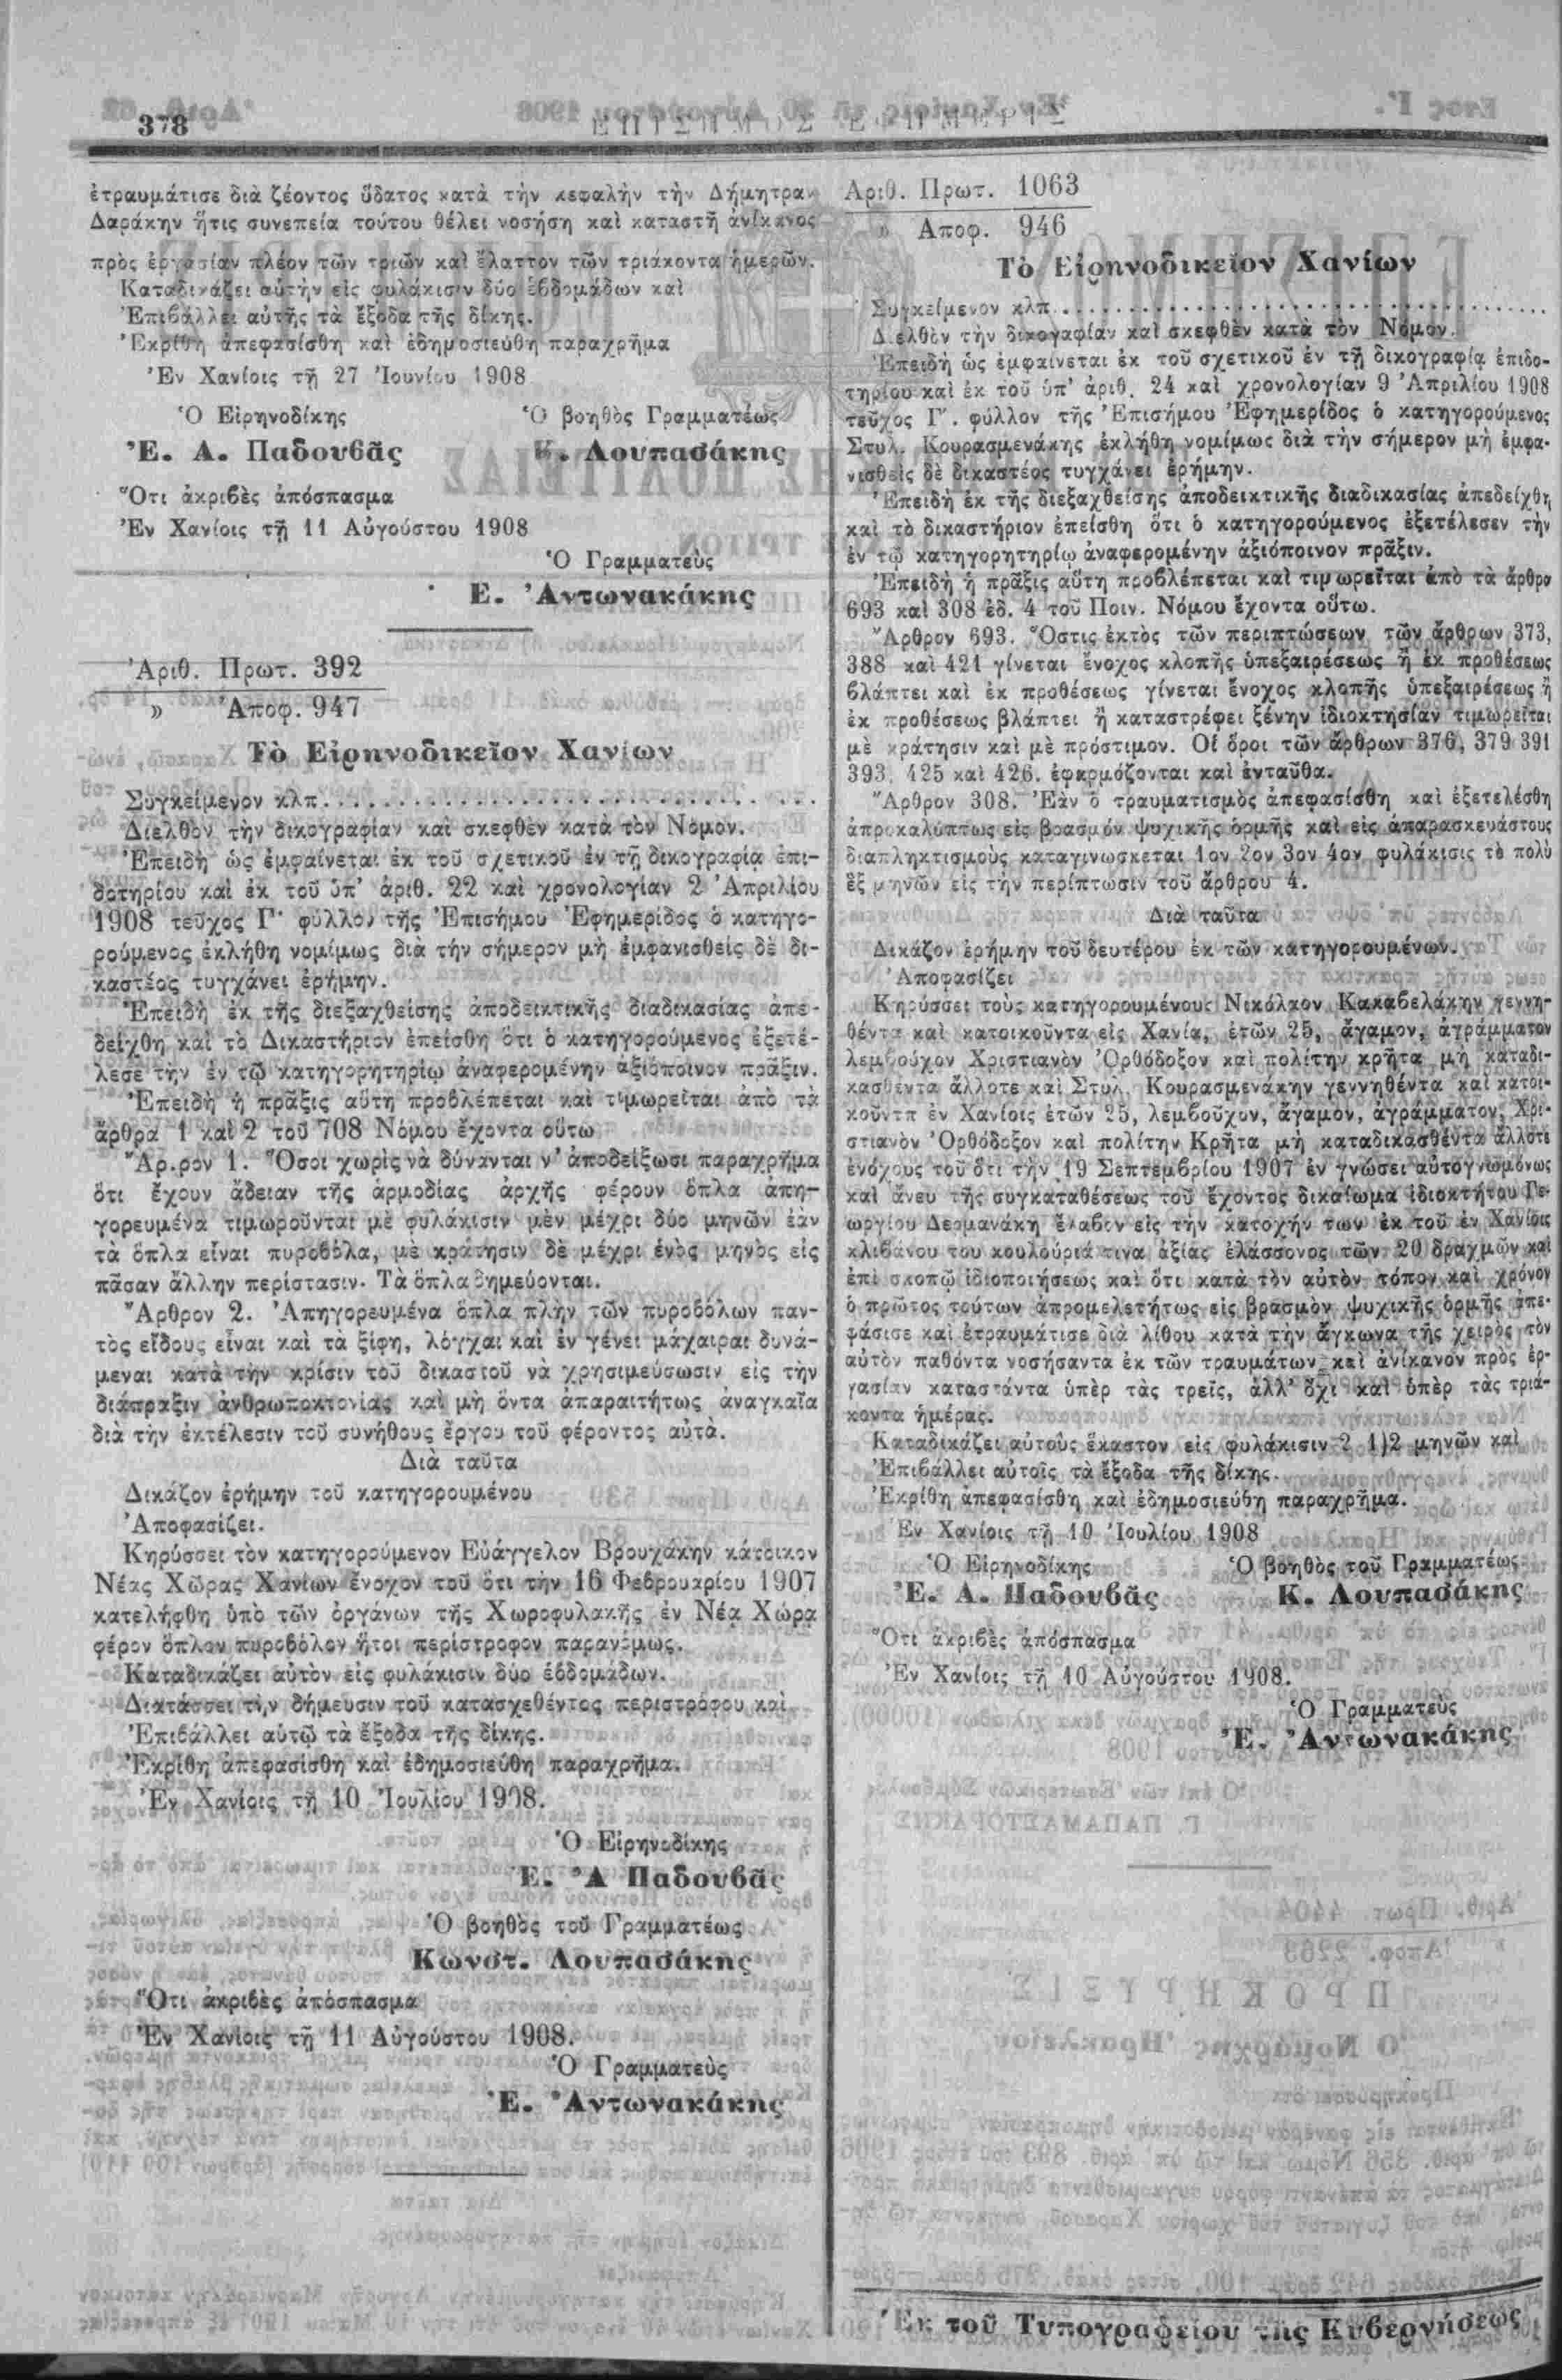 378
ΕΠΙΣΗΜΟΣ ΕΦΗΜΕΡΙΣ
ἐτραυμάτισε διὰ ζέοντος ὕδατος κατὰ τὴν κεφαλὴν τὴν Δήμητραν
Δαράκην ἥτις συνεπεία τούτου θέλει νοσήση καὶ καταστῆ ἀνίκανος
πρὸς ἐργασίαν πλέον τῶν τριῶν καὶ ἔλαττον τῶν τριάκοντα ἡμερῶν.
Καταδικάζει αὐτὴν εἰς φυλάκισιν δύο ἑβδομάδων καὶ
Ἐπιβάλλει αὐτῆς τὰ ἔξοδα τῆς δίκης.
Ἐκρίθη ἀπεφασίσθη καὶ ἐδημοσιεύθη παραχρῆμα
Ἐν Χανίοις τῇ 27 Ἰουνίου 1908
Ὁ Εἰρηνοδίκης Ὁ βοηθὸς Γραμματέως
Ἐ. Α. Παδουβᾶς Κ. Λουπασάκης
Ὅτι ἀκριβὲς ἀπόσπασμα
Ἐν Χανίοις τῇ 11 Αὐγούστου 1908
Ὁ Γραμματεὺς
Ε. Ἀντωνακάκης
Ἀριθ. Πρωτ. 392
» Ἀποφ. 947
Τὸ Εἰρηνοδικεῖον Χανίων
Συγκείμενον κλπ. . . . . . . . . . . . . . . . . . . . . . . . . . . . .
Διελθὸν τὴν δικογραφίαν καὶ σκεφθὲν κατὰ τὸν Νόμον.
Ἐπειδὴ ὡς ἐμφαίνεται ἐκ τοῦ σχετικοῦ ἐν τῇ δικογραφίᾳ ἐπι-
δοτηρίου καὶ ἐκ τοῦ ὑπ' ἀριθ. 22 καὶ χρονολογίαν 2 Ἀπριλίου
1908 τεῦχος Γ' φύλλον τῆς Ἐπισήμου Ἐφημερίδος ὁ κατηγο-
ρούμενος ἐκλήθη νομίμως διὰ τὴν σήμερον μὴ ἐμφανισθεὶς δὲ δι-
καστέος τυγχάνει ἐρήμην.
Ἐπειδὴ ἐκ τῆς διεξαχθείσης ἀποδεικτικῆς διαδικασίας ἀπε-
δείχθη καὶ τὸ Δικαστήριον ἐπείσθη ὅτι ὁ κατηγορούμενος ἐξετέ-
λεσε τὴν ἐν τῷ κατηγορητηρίῳ ἀναφερομένην ἀξιόποινον πρᾶξιν.
Ἐπειδὴ ἡ πρᾶξις αὕτη προβλέπεται καὶ τιμωρεῖται ἀπὸ τὰ
ἄρθρα 1 καὶ 2 τοῦ 708 Νόμου ἔχοντα οὕτω
Ἄρ.ρον 1. Ὅσοι χωρὶς νὰ δύνανται ν' ἀποδείξωσι παραχρῆμα
ὅτι ἔχουν ἄδειαν τῆς ἁρμοδίας ἀρχῆς φέρουν ὅπλα ἀπη-
γορευμένα τιμωροῦνται μὲ φυλάκισιν μὲν μέχρι δύο μηνῶν ἐὰν
τὰ ὅπλα εἶναι πυροβόλα, μὲ κράτησιν δὲ μέχρι ἑνὸς μηνὸς εἰς
πᾶσαν ἄλλην περίστασιν. Τὰ ὅπλα δημεύονται.
Ἄρθρον 2. Ἀπηγορευμένα ὅπλα πλὴν τῶν πυροβόλων παν-
τὸς εἴδους εἶναι καὶ τὰ ξίφη, λόγχαι καὶ ἐν γένει μάχαιραι δυνά-
μεναι κατὰ τὴν κρίσιν τοῦ δικαστοῦ νὰ χρησιμεύσωσιν εἰς τὴν
διάπραξιν ἀνθρωποκτονίας καὶ μὴ ὄντα ἀπαραιτήτως ἀναγκαῖα
διὰ τὴν ἐκτέλεσιν τοῦ συνήθους ἔργου τοῦ φέροντος αὐτά.
Διὰ ταῦτα
Δικάζον ἐρήμην τοῦ κατηγορουμένου
Ἀποφασίζει.
Κηρύσσει τὸν κατηγορούμενον Εὐάγγελον Βρουχάκην κάτοικον
Νέας Χώρας Χανίων ἔνοχον τοῦ ὅτι τὴν 16 Φεβρουαρίου 1907
κατελήφθη ὑπὸ τῶν ὀργάνων τῆς Χωροφυλακῆς ἐν Νέᾳ Χώρᾳ
φέρον ὅπλον πυροβόλον ἤτοι περίστροφον παρανόμως.
Καταδικάζει αὐτὸν εἰς φυλάκισιν δύο ἑβδομάδων.
Διατάσσει τὴν δήμευσιν τοῦ κατασχεθέντος περιστρόφου καὶ
Ἐπιβάλλει αὐτῷ τὰ ἔξοδα τῆς δίκης.
Ἐκρίθη ἀπεφασίσθη καὶ ἐδημοσιεύθη παραχρῆμα.
Ἐν Χανίοις τῇ 10 Ἰουλίου 1908.
Ὁ Εἰρηνοδίκης
Ἐ. Ἀ Παδουβᾶς
Ὁ βοηθὸς τοῦ Γραμματέως
Κωνστ. Λουπασάκης
Ὅτι ἀκριβὲς ἀπόσπασμα
Ἐν Χανίοις τῇ 11 Αὐγούστου 1908.
Ὁ Γραμματεὺς
Ἐ. Ἀντωνακάκης
Ἀριθ. Πρωτ. 1063
» Αποφ. 946
Τὸ Εἰρηνοδικεῖον Χανίων
Συγκείμενον κλπ. . . . . . . . . . . . . . . . . . . . . . . . . . . . .
Διελθὸν τὴν δικογαφίαν καὶ σκεφθὲν κατὰ τὸν Νόμον.
Ἐπειδὴ ὡς ἐμφαίνεται ἐκ τοῦ σχετικοῦ ἐν τῇ δικογραφίᾳ ἐπιδο-
τηρίου καὶ ἐκ τοῦ ὑπ' ἀριθ. 24 καὶ χρονολογίαν 9 Ἀπριλίου 1908
τεῦχος Γ'. φύλλον τῆς Ἐπισήμου Ἐφημερίδος ὁ κατηγορούμενος
Στυλ. Κουρασμενάκης ἐκλήθη νομίμως διὰ τὴν σήμερον μὴ ἐμφα-
νισθεὶς δὲ δικαστέος τυγχάνει ἐρήμην.
Ἐπειδὴ ἐκ τῆς διεξαχθείσης ἀποδεικτικῆς διαδικασίας ἀπεδείχθη
καὶ τὸ δικαστήριον ἐπείσθη ὅτι ὁ κατηγορούμενος ἐξετέλεσεν τὴν
ἐν τῷ κατηγορητηρίῳ ἀναφερομένην ἀξιόποινον πρᾶξιν.
Ἐπειδὴ ἡ πρᾶξις αὕτη προβλέπεται καὶ τιμωρεῖται ἀπὸ τὰ ἄρθρα
693 καὶ 308 ἐδ. 4 τοῦ Ποιν. Νόμου ἔχοντα οὕτω.
Ἄρθρον 693. Ὅστις ἐκτὸς τῶν περιπτώσεων τῶν ἄρθρων 373,
388 καὶ 421 γίνεται ἔνοχος κλοπῆς ὑπεξαιρέσεως ἢ ἐκ προθέσεως
βλάπτει καὶ ἐκ προθέσεως γίνεται ἔνοχος κλοπῆς ὑπεξαιρέσεως ἢ
ἐκ προθέσεως βλάπτει ἢ καταστρέφει ξένην ἰδιοκτησίαν τιμωρεῖται
μὲ κράτησιν καὶ μὲ πρόστιμον. Οἱ ὅροι τῶν ἄρθρων 376, 379 391
393, 425 καὶ 426. ἐφαρμόζονται καὶ ἐνταῦθα.
Ἄρθρον 308. Ἐὰν ὁ τραυματισμὸς ἀπεφασίσθη καὶ ἐξετελέσθη
ἀπροκαλύπτως εἰς βρασμὸν ψυχικῆς ὁρμῆς καὶ εἰς ἀπαρασκευάστους
διαπληκτισμοὺς καταγινωσκεται 1ον 2ον 3ον 4ον φυλάκισις τὸ πολὺ
ἓξ μηνῶν εἰς τὴν περίπτωσιν τοῦ ἄρθρου 4.
Διὰ ταῦτα
Δικάζον ἐρήμην τοῦ δευτέρου ἐκ τῶν κατηγορουμένων.
Ἀποφασίζει
Κηρύσσει τοὺς κατηγορουμένους Νικόλαον Κακαβελάκην γεννη-
θέντα καὶ κατοικοῦντα εἰς Χανία, ἐτῶν 25, ἄγαμον, ἀγράμματον
λεμβοῦχον Χριστιανὸν Ὀρθόδοξον καὶ πολίτην κρῆτα μὴ καταδι-
κασθέντα ἄλλοτε καὶ Στυλ. Κουρασμενάκην γεννηθέντα καὶ κατοι-
κοῦντπ ἐν Χανίοις ἐτῶν 25, λεμβοῦχον, ἄγαμον, ἀγράμματον, Χρι-
στιανὸν Ὀρθόδοξον καὶ πολίτην Κρῆτα μὴ καταδικασθέντα ἄλλοτε
ἐνόχους τοῦ ὅτι τὴν 19 Σεπτεμβρίου 1907 ἐν γνώσει αὐτογνωμόνως
καὶ ἄνευ τῆς συγκαταθέσεως τοῦ ἔχοντος δικαίωμα ἰδιοκτήτου Γε-
ωργίου Δερμανάκη ἔλαβον εἰς τὴν κατοχήν των ἐκ τοῦ ἐν Χανίοις
κλιβάνου του κουλούριά τινα ἀξίας ἐλάσσονος τῶν 20 δραχμῶν καὶ
ἐπὶ σκοπῷ ἰδιοποιήσεως καὶ ὅτι κατὰ τὸν αὐτὸν τόπον καὶ χρόνον
ὁ πρῶτος τούτων ἀπρομελετήτως εἰς βρασμὸν ψυχικῆς ὁρμῆς ἀπε-
φάσισε καὶ ἐτραυμάτισε διὰ λίθου κατὰ τὴν ἄγκωνα τῆς χειρὸς τὸν
αὐτὸν παθόντα νοσήσαντα ἐκ τῶν τραυμάτων καὶ ἀνίκανον πρὸς ἐρ-
γασίαν καταστάντα ὑπὲρ τὰς τρεῖς, ἀλλ' ὄχι καὶ ὑπὲρ τὰς τριά-
κοντα ἡμέρας.
Καταδικάζει αὐτοὺς ἕκαστον εἰς φυλάκισιν 2 1)2 μηνῶν καὶ
Ἐπιβάλλει αὐτοῖς τὰ ἔξοδα τῆς δίκης.
Ἐκρίθη ἀπεφασίσθη καὶ ἐδημοσιεύθη παραχρῆμα.
Ἐν Χανίοις τῇ 10 Ἰουλίου 1908
Ὁ Εἰρηνοδίκης Ὁ βοηθὸς τοῦ Γραμματέως
Ἐ. Α. Παδουβᾶς Κ. Λουπασάκης
Ὅτι ἀκριβὲς ἀπόσπασμα
Ἐν Χανίοις τῇ 10 Αὐγούστου 1908.
Ὁ Γραμματεὺς
Ἐ. Ἀντωνακάκης
Ἐκ τοῦ Τυπογραφείου τῆς Κυβερνήσεως